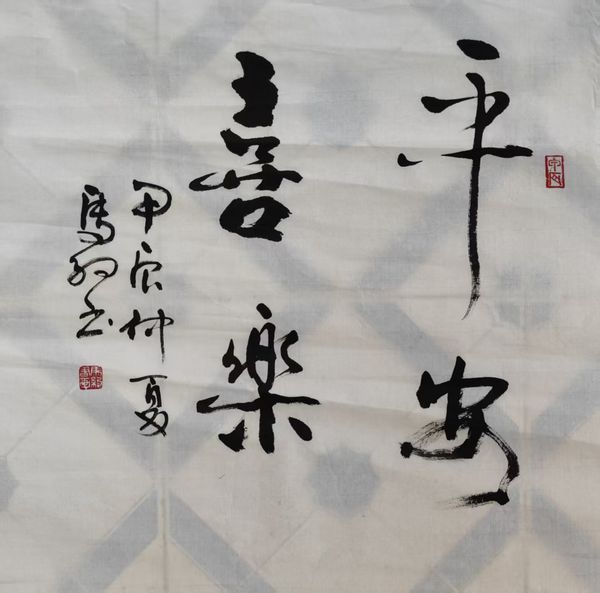 平安
喜樂
甲辰仲夏